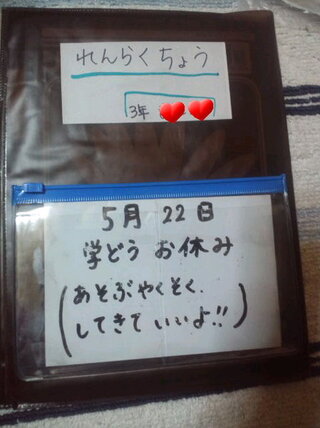 れんらくちょう
3年
5月 22日
学どう お休み
(あそぶやくそく、
してきていいよ!!)